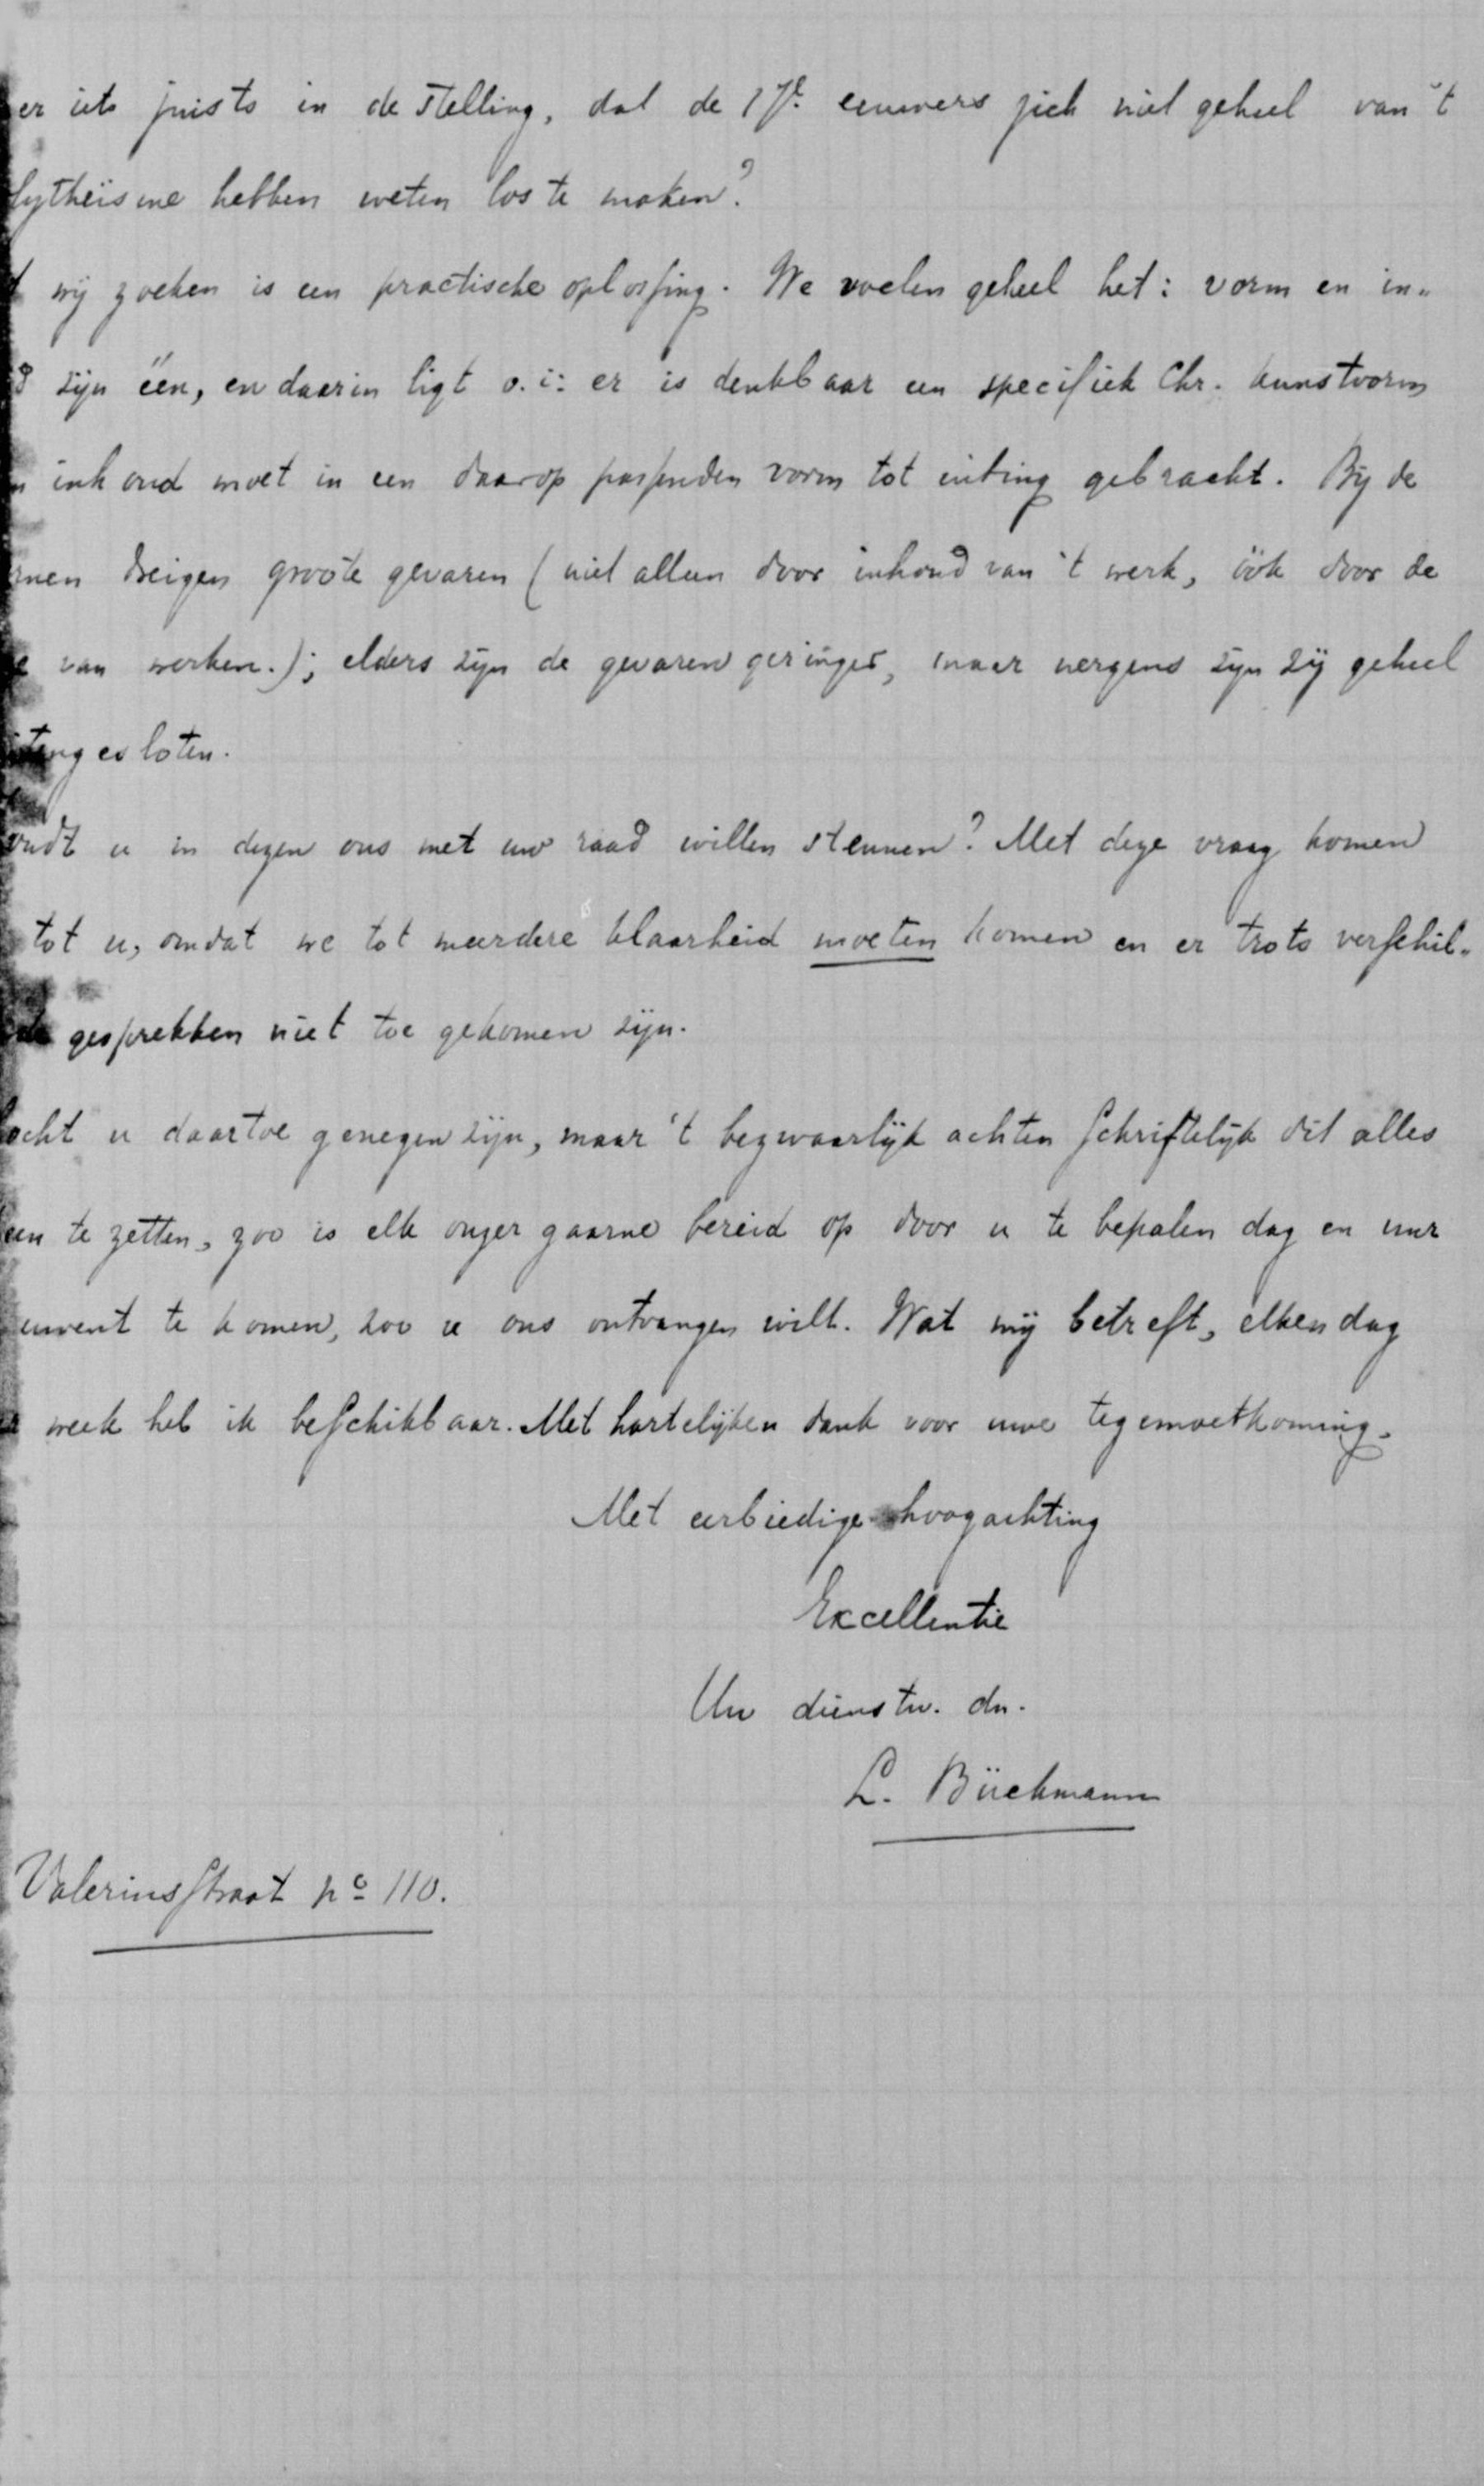 er iets juists in de stelling, dat de 17e eeuwers zich niet geheel van 't
lytheïsme hebben weten los te maken?
wij zoeken is een practische oplossing. We voelen geheel het: vorm en in-
zijn één, en daarin ligt o.i: er is denkbaar een specifiek Chr. kunstvorm
inhoud moet in een daarop passenden vorm tot uiting gebracht. Bij de
men dreigen groote gevaren (niet alleen door inhoud van 't werk, óók door de
van werken.); elders zijn de gevaren geringer, maar nergens zijn zij geheel
itengesloten.
oudt u in dezen ons met uw raad willen steunen? Met deze vraag komen
tot u, omdat we tot meerdere klaarheid moeten komen en er trots verschil-
gesprekken niet toe gekomen zijn.
ocht u daartoe genegen zijn, maar 't bezwaarlijk achten schriftelijk dit alles
een te zetten, zoo is elk onzer gaarne bereid op door u te bepalen dag en uur
uwent te komen, zoo u ons ontvangen wilt. Wat mij betreft, elken dag
week heb ik beschikbaar. Met hartelijken dank voor uwe tegemoetkoming.
Met eerbiedige hoogachting
Excellentie
Uw dienstw. dn.
L. Bückmann
Valeriusstraat no 110.